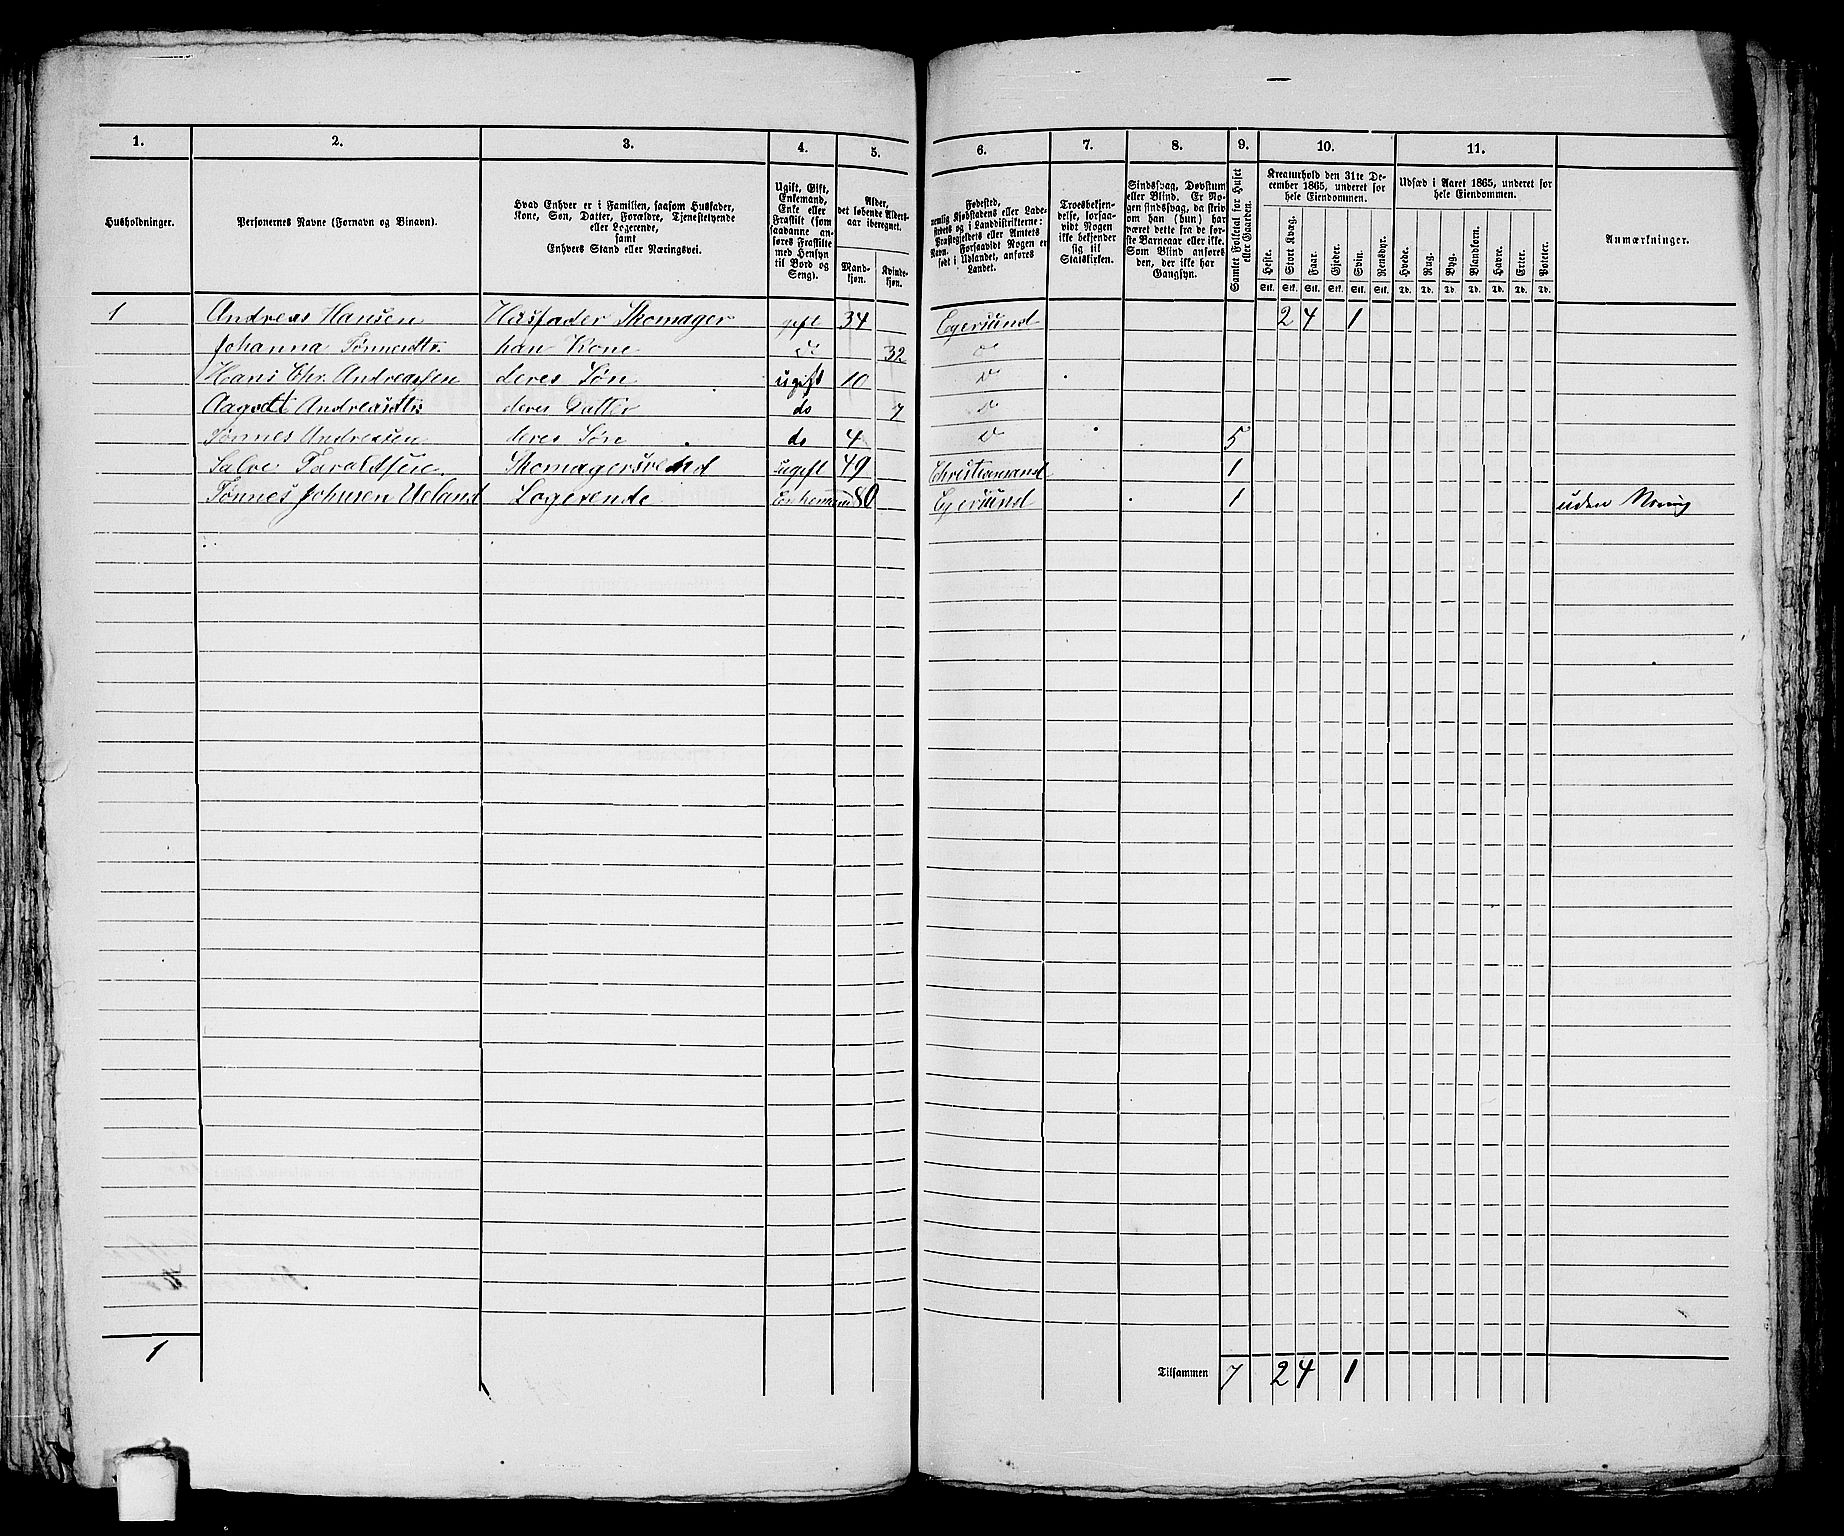 1. 2. 3. 4. 5. 6. 7. 8. 9. 10. 11.
Husholdninger.
Personernes Navne (Fornavn og Binavn).
Hvad Enhver er i Familien, saasom Husfader,
Kone, Søn, Datter, Forældre, Tjenestetyende
eller Logerende,
samt
Enhvers Stand eller Næringsvei.
Ugift, Gift,
Enkemand,
Enke eller
Fraskilt (som
saadanne an-
føres Fraskilte
med Hensyn
til Bord og
Seng).
Alder,
det løbende Alders-
aar iberegnet.
Mand-
kjøn.
Kvinde-
kjøn.
Fødested,
nemlig Kjøbstadens eller Lade-
stedets og i Landdistrikterne:
Præstegjeldets eller Amtets
Navn. Forsaavidt Nogen er
født i Udlandet, anføres
Landet.
Troesbekjen-
delse, forsaa-
vidt Nogen
ikke bekjender
sig til
Statskirken.
Sindssvag, Døvstum
eller Blind. Er No-
gen sindssvag, da skriv
om han (hun) har
været dette fra de før-
ste Barneaar eller ikke.
Som Blind anføres
den, der ikke har
Gangsyn.
Samlet Folketal for Huset
eller Gaarden.
Kreaturhold den 31te De-
cember 1865, underet for
hele Eiendommen.
Heste. Stort Kvæg. Faar. Gjeder. Svin. Rensdyr.
Stk. Stk. Stk. Stk. Stk. Stk.
Udsæd i Aaret 1865, underet for
hele Eiendommen.
Hvede. Rug. Byg. Blandkorn. Havre. Erter. Poteter.
Td. Td. Td. Td. Td. Td. Td.
Anmærkninger.
1 Andreas Hansen Husfader Skomager gift 34 Egersund 2 4 1
Johanna Tønnesdtr. han Kone do 32 do
Hans Chr. Andreassen deres Søn ugift 10 do
Andreasdtr deres Datter do 7 do
Tønnes Andreasen deres Søn do 4 do 5
Salve Taraldsen Skomagersvend ugift 49 Christiansand 1
Tønnes Johnsen Ueland Logerende Enkemand 80 Egersund 1 uden Næring
1
Tilsammen 7 2 4 1